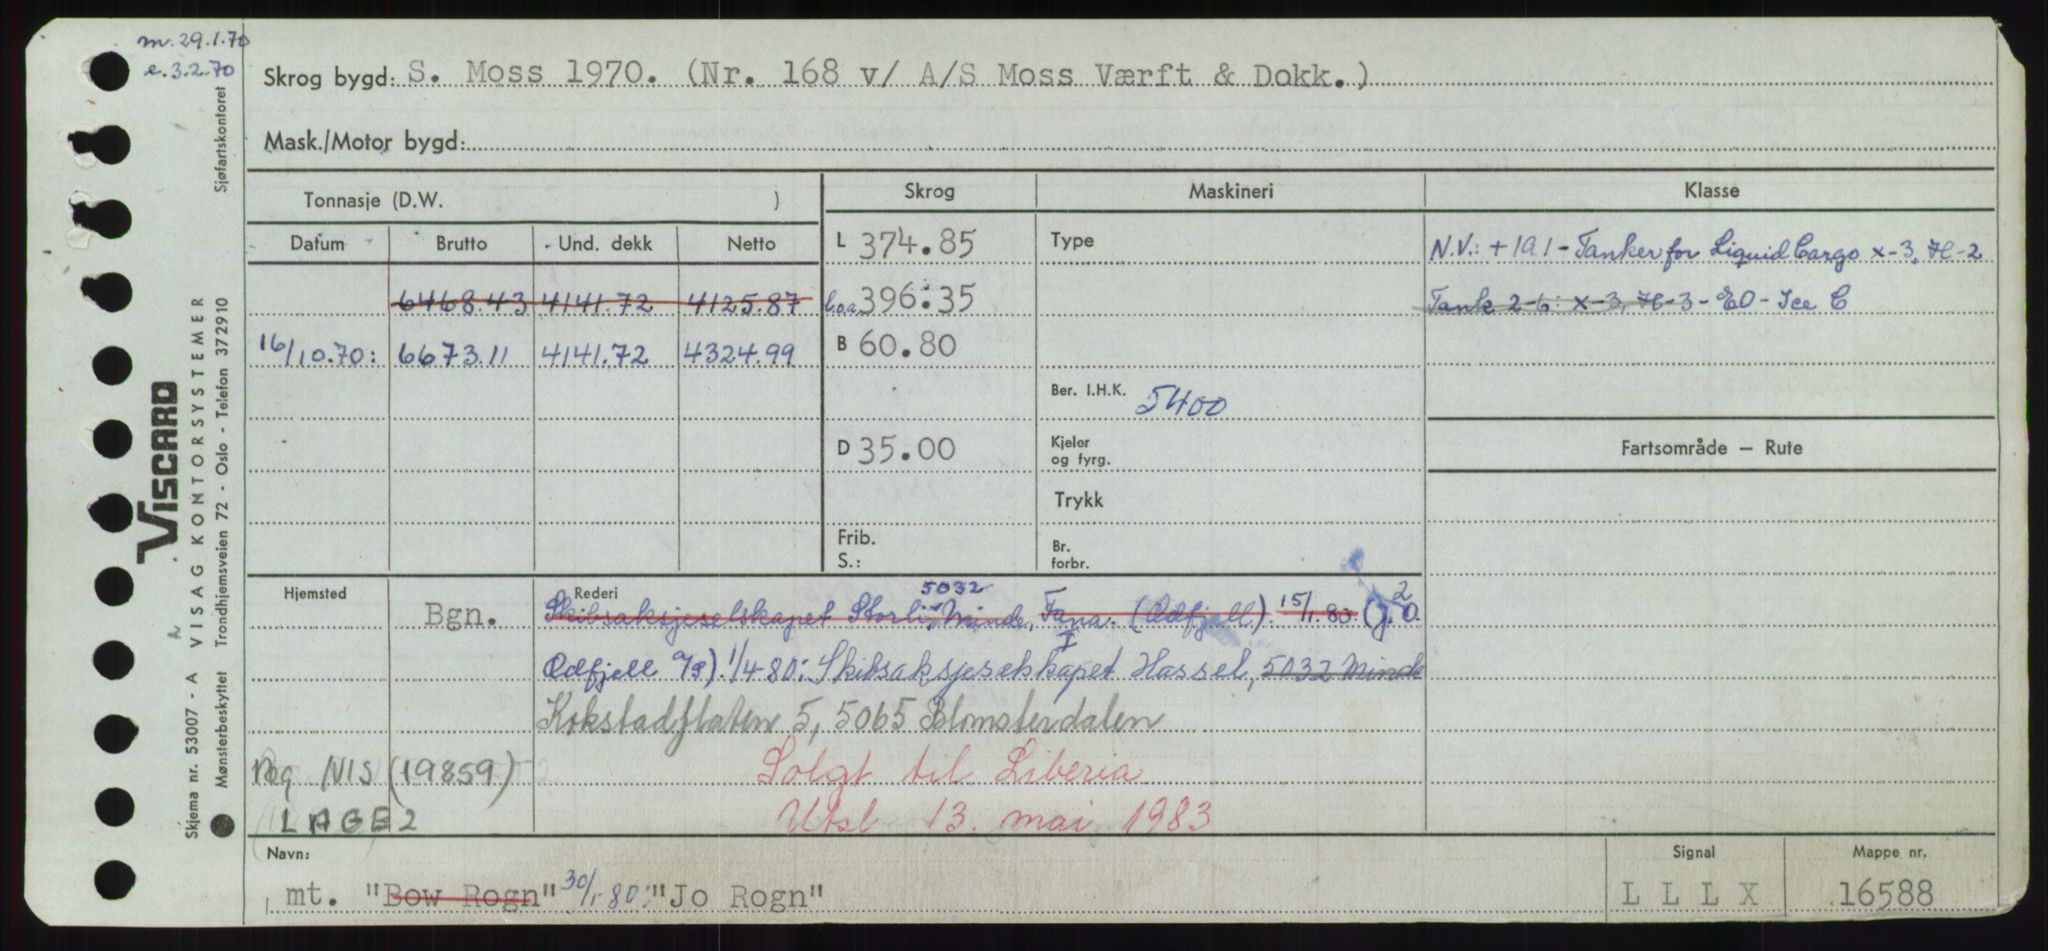 m. 29.1.70
e. 3.2.70
Skrog bygd: S. Moss 1970. (Nr. 168 v/ A/S Moss Værft & Dokk.)
Mask./Motor bygd:
Tonnasje (D.W. )
Skrog
Maskineri
Klasse
Datum Brutto Und. dekk Netto
L 374.85
Type
N.V.: + 1A1 - Tanker for Liquid Cargo x-3, H-2
6468.43 4141.72 4125.87
l.o.a. 396.35
Tank 2-6: x-3, H-3 - EO - Ice C
16/10.70: 6673.11 4141.72 4324.99
B 60.80
Ber. I.H.K. 5400
D 35.00
Kjeler
og fyrg.
Fartsområde — Rute
Trykk
Frib.
S.:
Br.
forbr.
Hjemsted
Bgn.
Rederi
5032
Skibsaksjeselskapet Storli, Minde, Fana. (Odfjell). 15/1.80. (J.O.
2
Odfjell A/S). 1/4 80: Skibsaksjeselskapet I Hassel, 5032 Minde
Kokstadflaten 5, 5065 Blomsterdalen
Reg NIS (19859)
Solgt til Liberia
LAGE2
Utsl 13. mai 1983
Navn:
mt. "Bow Rogn" 30/1.80: "Jo Rogn"
Signal
L L L X
Mappe nr.
16588
Skjema nr. 53007 - A VISAG KONTORSYSTEMER
VISCARD
Mønsterbeskyttet Trondhjemsveien 72 - Oslo - Telefon 372910
Sjøfartskontoret